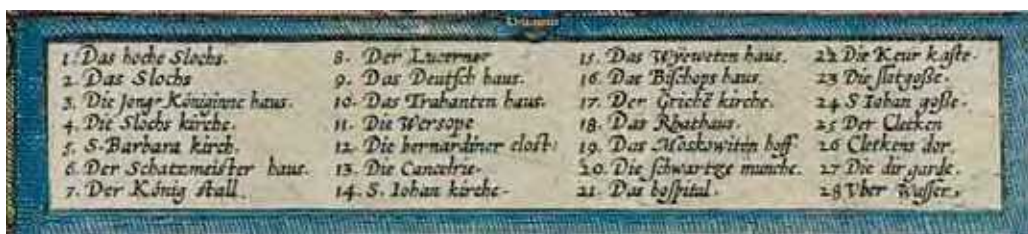 1. Das hoche Slochs.
2. Das Slochs
3. Die Jong. Königinne haus.
4. Die Slochs kirche.
5. S. Barbara kirch.
6. Der Schatzmeister haus.
7. Der König stall.
8. Der Lucerner
9. Das Deutsch haus.
10. Das Trabanten haus.
11. Die Wersope
12. Die bernardiner clost:
13. Die Cancelrie.
14. S. Iohan kirche.
15. Das Wÿeweten haus.
16. Das Bischops haus.
17. Der Grichē kirche.
18. Das Rhathaus.
19. Das Moskowitin hoff.
20. Die schwartze munche.
21. Das hospital.
22 Die Keur kaste.
23 Die slotgoße.
24 S Iohan goße.
25 Der Clecken
26 Cleckens dor.
27 Die dir garde.
28 Vber Wasser.